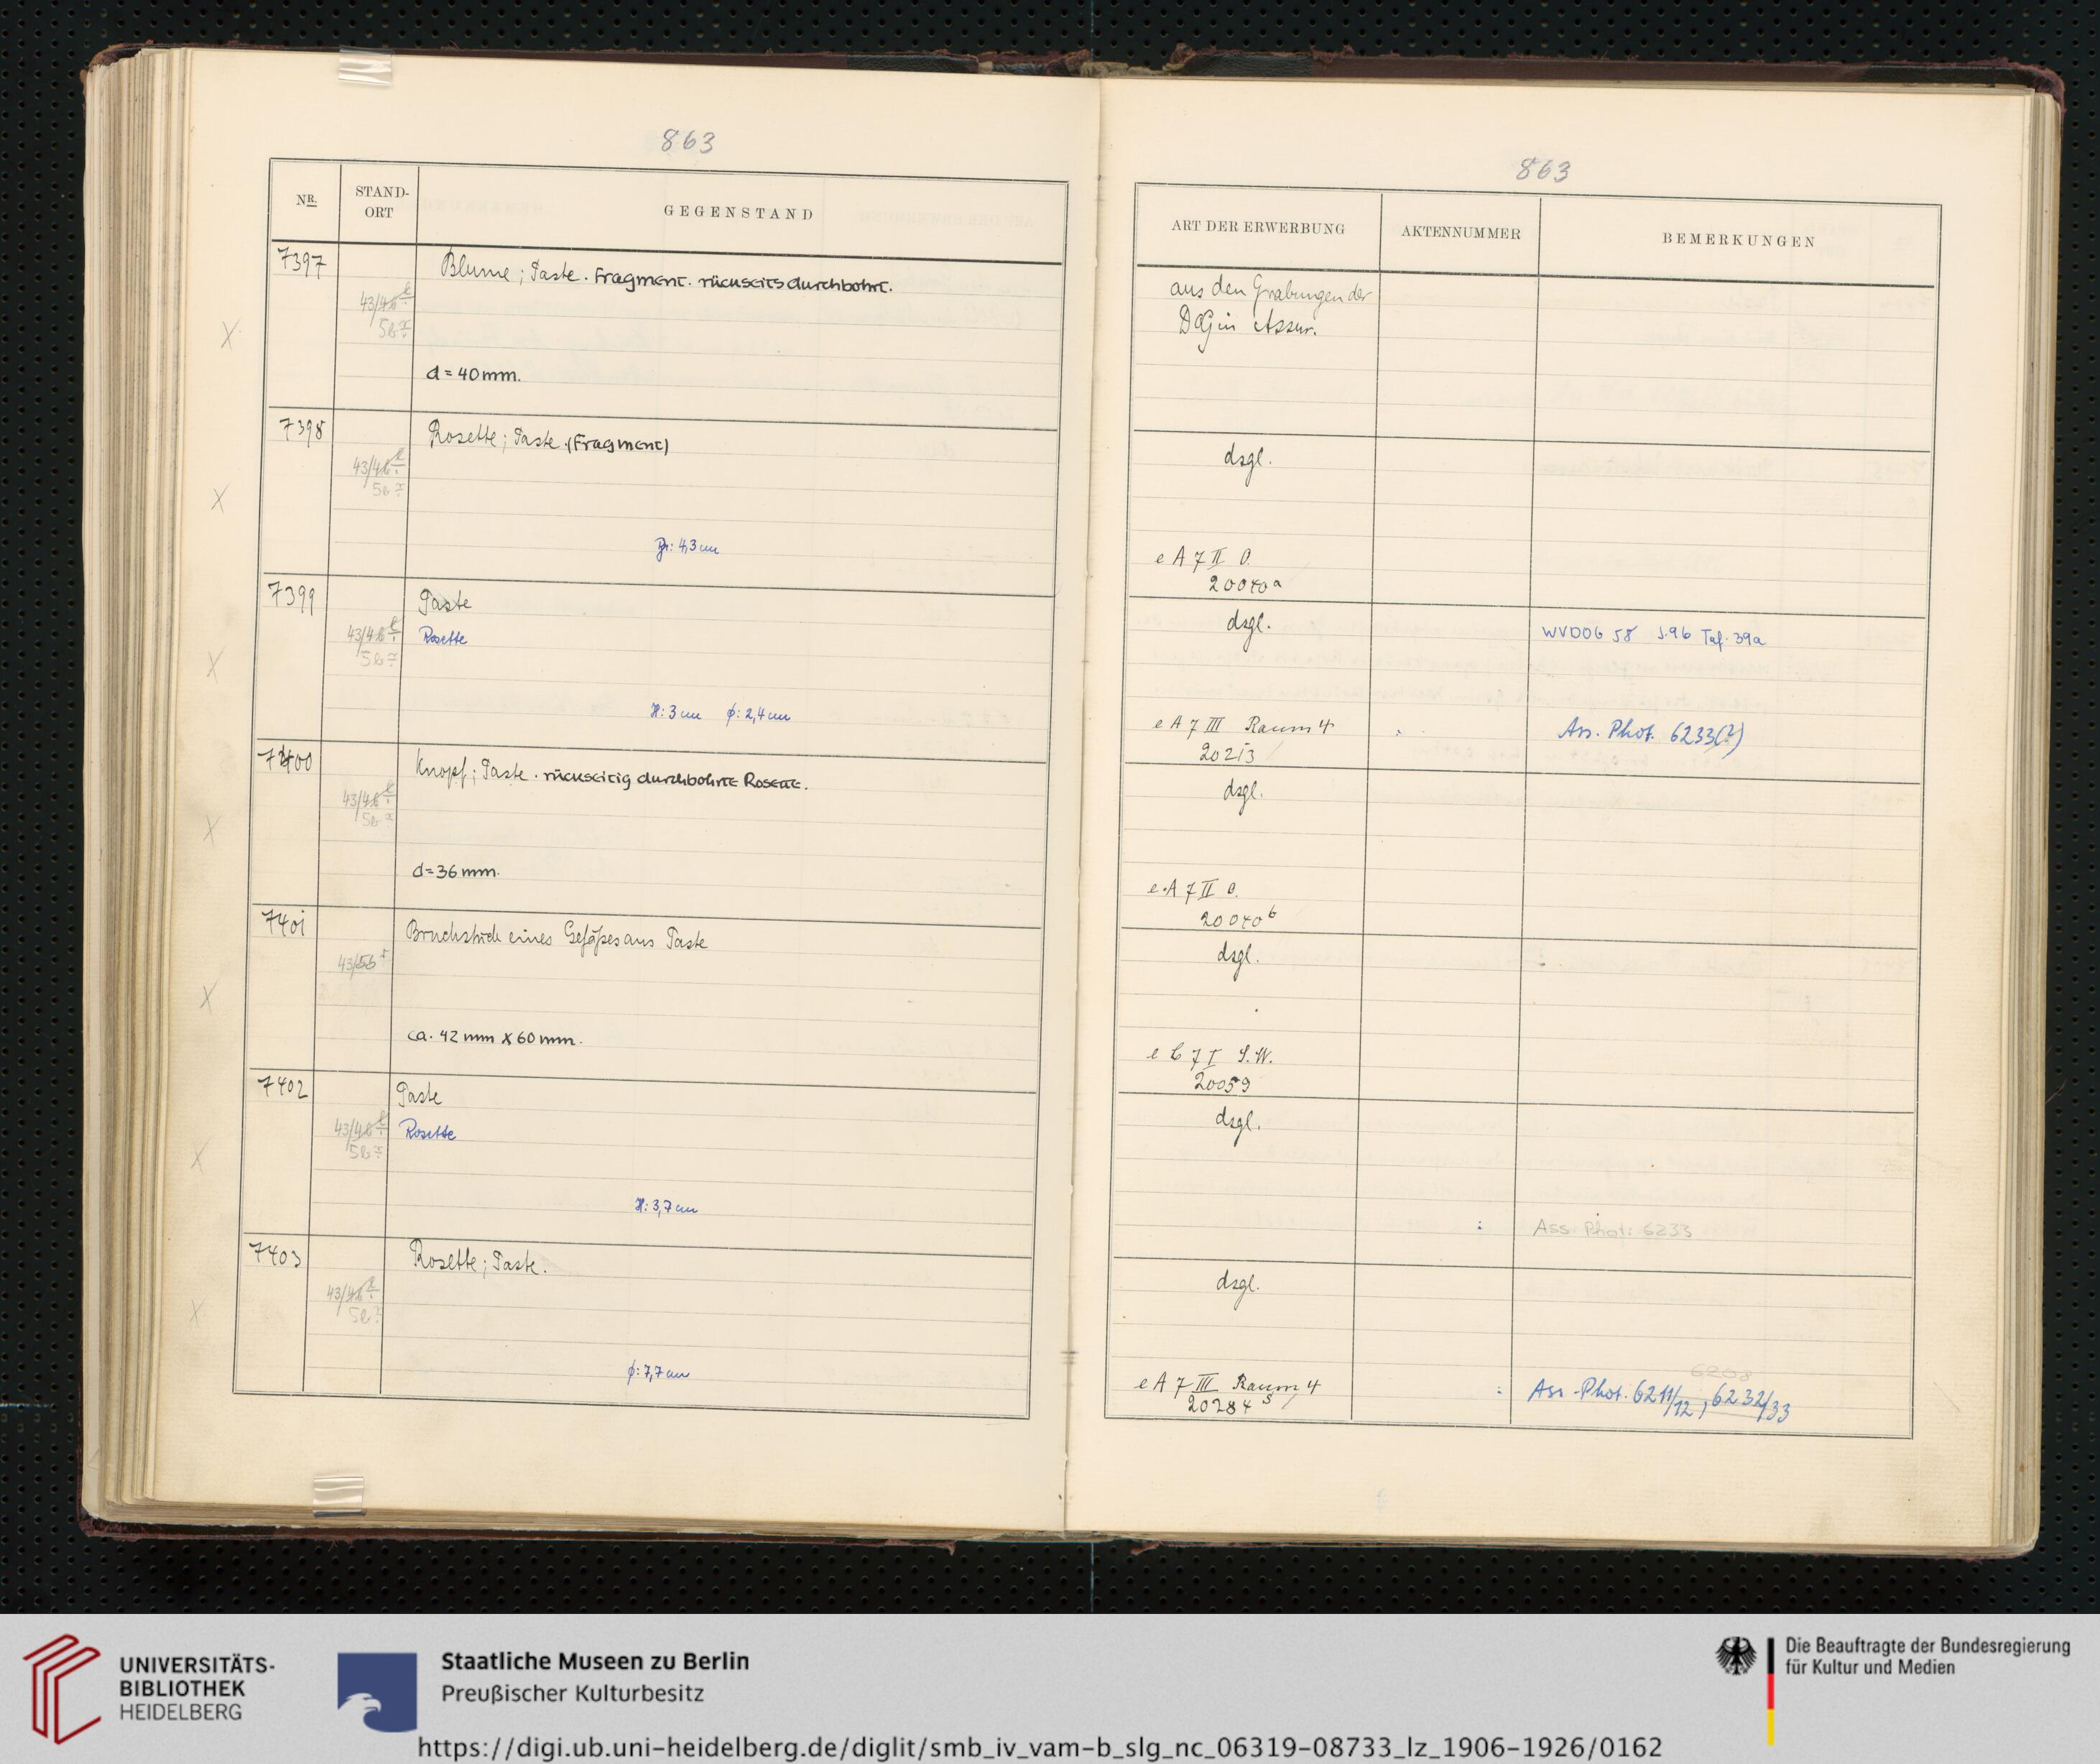 863
863
NR.
STAND-
ORT
GEGENSTAND
ART DER ERWERBUNG
AKTENNUMMER
BEMERKUNGEN
7397
43/4b
5b
Blume; Paste. Fragment. rückseits durchbohrt.
d = 40mm.
aus den Grabungen der
DOG in Assur.
7398
43/4b
5b
Rosette; Paste. (Fragment)
Br: 4,3 cm
dsgl.
e A 7 II O.
20040a
7399
43/4b
5b
Paste
Rosette
H: 3 cm ϕ: 2,4 cm
dsgl.
e A 7 III Raum 4
20213
WVDOG 58 S.96 Taf. 39a
Ass. Phot. 6233(?)
7400
43/4b
5b
Knopf; Paste. rückseitig durchbohrte Rosette.
d = 36 mm.
dsgl.
e A 7 II O.
20040b
7401
43/5b
Bruchstück eines Gefäßes aus Paste
ca. 42 mm x 60 mm.
dsgl.
e C 7 I S.W.
20059
7402
43/4b
5b
Paste
Rosette
H: 3,7 cm
dsgl.
Ass. Phot: 6233
7403
43/4b
5b
Rosette; Paste.
ϕ: 7,7 cm
dsgl.
e A 7 III Raum 4
20284 s
6208
Ass. Phot. 6211/12, 6232/33
UNIVERSITÄTS-
BIBLIOTHEK
HEIDELBERG
Staatliche Museen zu Berlin
Preußischer Kulturbesitz
Die Beauftragte der Bundesregierung
für Kultur und Medien
https://digi.ub.uni-heidelberg.de/diglit/smb_iv_vam-b_slg_nc_06319-08733_lz_1906-1926/0162